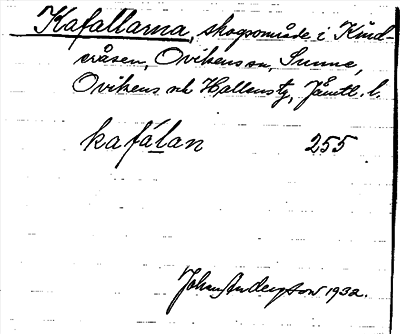 Kafallarna, skogsområde i Kind-
råsen, Ovikens sn, Sunne,
Ovikens och Hallens tg, Jämtl. l.
kafálan 255
Johan Anderson 1932.